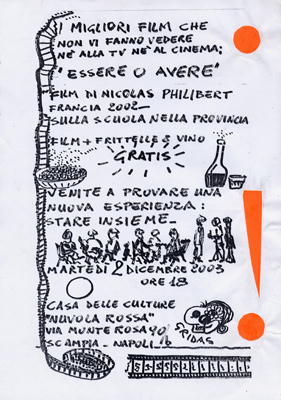 I MIGLIORI FILM CHE
NON VI FANNO VEDERE
NÈ ALLA TV NÈ AL CINEMA;
"ESSERE O AVERE"
FILM DI NICOLAS PHILIBERT
FRANCIA 2002-
SULLA SCUOLA NELLA PROVINCIA
FILM + FRITTELLE & VINO
GRATIS
VENITE A PROVARE UNA
NUOVA ESPERIENZA:
STARE INSIEME-
MARTEDÌ 2 DICEMBRE 2003
ORE 18
CASA DELLE CULTURE
"NUVOLA ROSSA"
VIA MONTE ROSA 90
SCAMPIA - NAPOLI